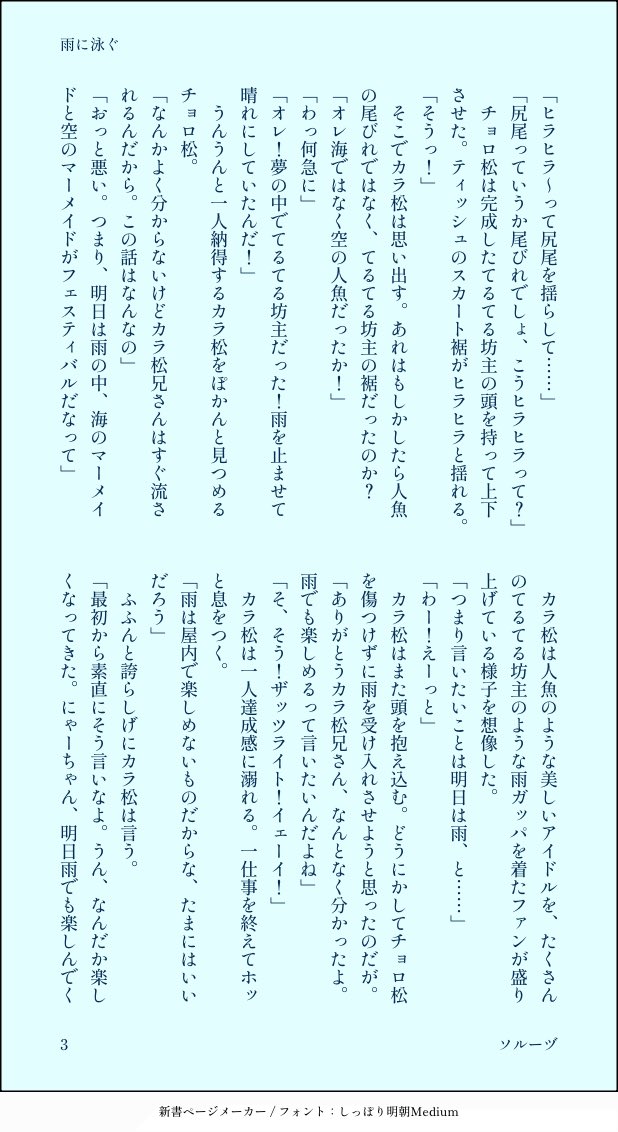 雨に泳ぐ
「ヒラヒラ～って尻尾を揺らして……」
「尻尾っていうか尾びれでしょ、こうヒラヒラって？」
　チョロ松は完成したてるてる坊主の頭を持って上下
させた。ティッシュのスカート裾がヒラヒラと揺れる。
「そうっ！」
　そこでカラ松は思い出す。あれはもしかしたら人魚
の尾びれではなく、てるてる坊主の裾だったのか？
「オレ海ではなく空の人魚だったか！」
「わっ何急に」
「オレ！夢の中でてるてる坊主だった！雨を止ませて
晴れにしていたんだ！」
　うんうんと一人納得するカラ松をぽかんと見つめる
チョロ松。
「なんかよく分からないけどカラ松兄さんはすぐ流さ
れるんだから。この話はなんなの」
「おっと悪い。つまり、明日は雨の中、海のマーメイ
ドと空のマーメイドがフェスティバルだなって」
　カラ松は人魚のような美しいアイドルを、たくさん
のてるてる坊主のような雨ガッパを着たファンが盛り
上げている様子を想像した。
「つまり言いたいことは明日は雨、と……」
「わー！えーっと」
　カラ松はまた頭を抱え込む。どうにかしてチョロ松
を傷つけずに雨を受け入れさせようと思ったのだが。
「ありがとうカラ松兄さん、なんとなく分かったよ。
雨でも楽しめるって言いたいんだよね」
「そ、そう！ザッツライト！イェーイ！」
　カラ松は一人達成感に溺れる。一仕事を終えてホッ
と息をつく。
「雨は屋内で楽しめないものだからな、たまにはいい
だろう」
　ふふんと誇らしげにカラ松は言う。
「最初から素直にそう言いなよ。うん、なんだか楽し
くなってきた。にゃーちゃん、明日雨でも楽しんでく
3
ソルーヴ
新書ページメーカー / フォント：しっぽり明朝Medium